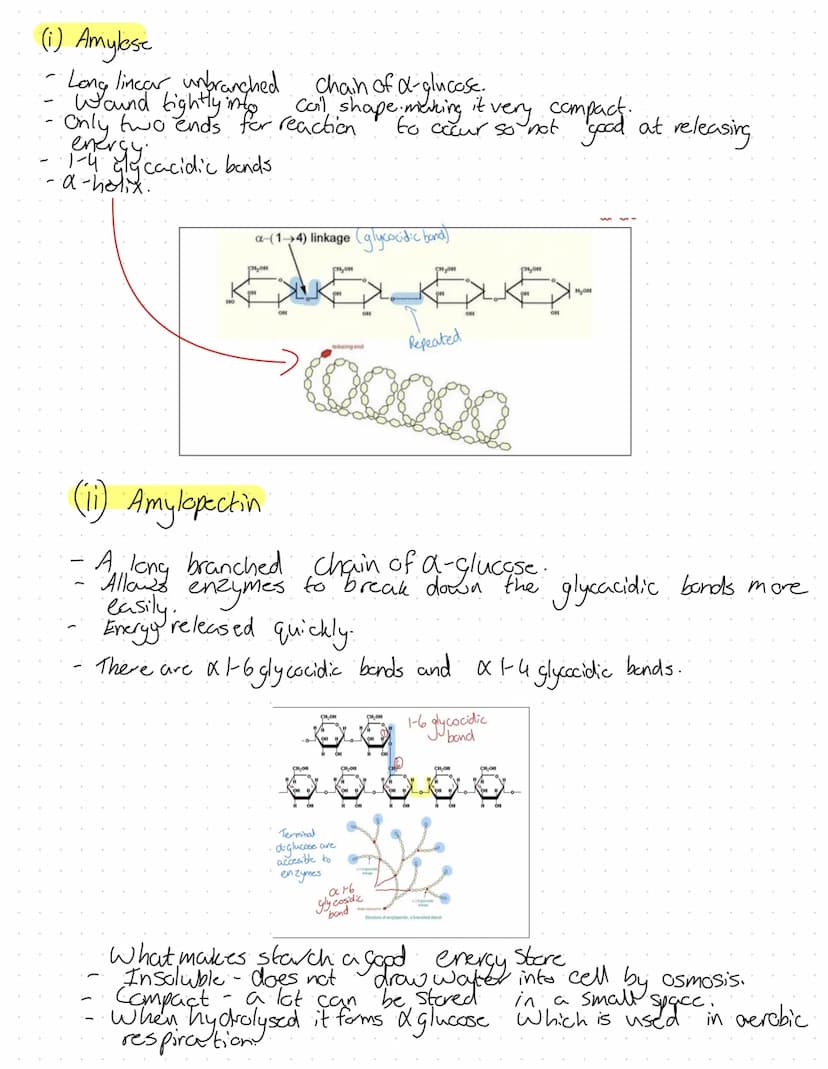 (i) Amylose
- Long linear unbranched chain of α-glucose.
- Wound tightly into coil shape making it very compact.
- Only two ends for reaction to occur so not good at releasing
energy.
- 1-4 glycacidic bonds
- α-helix.
α-(1→4) linkage (glycocidic bond)
CH₂OH CH₂OH CH₂OH CH₂OH
OH OH OH OH
HO O O O H₂OH
OH OH OH OH
Repeated
reducing end
(ii) Amylopectin
- A long branched chain of α-glucose.
- Allows enzymes to break down the glycacidic bonds more
easily.
- Energy released quickly.
- There are α 1-6 glycocidic bonds and α 1-4 glycocidic bonds.
1-6 glycocidic
bond
CH₂OH CH₂OH
CH₂OH CH₂OH CH₂OH CH₂OH
Terminal
α-glucose are
accesible to
enzymes
α 1-6
glycosidic
bond
Structure of amylopectin, a branched starch
What makes starch a good energy store
- Insoluble - does not draw water into cell by osmosis.
- Compact - a lot can be stored in a small space.
- When hydrolysed it forms α glucose which is used in aerobic
respiration.